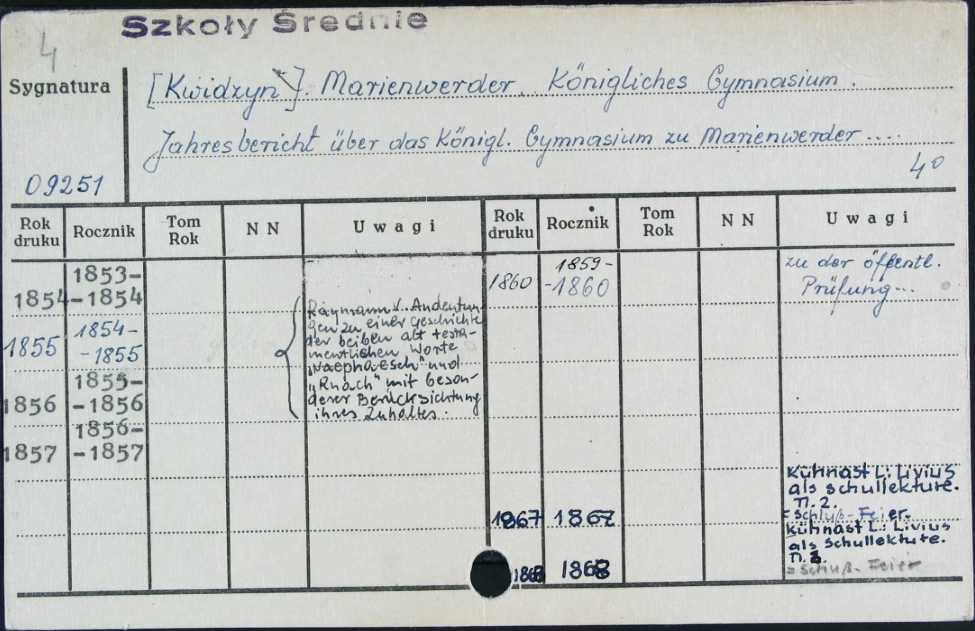 Szkoły Średnie
4
Sygnatura
09251
[Kwidzyn]. Marienwerder. Königliches Gymnasium.
Jahresbericht über das Königl. Gymnasium zu Marienwerder....
4°
Rok druku Rocznik Tom Rok N N Uwagi Rok druku Rocznik Tom Rok N N Uwagi
1854 1853-
-1854
1855 1854-
-1855
1856 1855-
-1856
1857 1856-
-1857
Raymann L. Andeutun
gen zu einer Geschichte
der beiben alt testa-
mentlichen Worte
"Naephaesch" und
"Ruach" mit beson-
derer Berücksichtung
ihres Inhaltes.
1860 1859-
-1860
zu der öffentl.
Prüfung...
1867 1867
Kühnast L.: Livius
als Schullekture.
T. 2.
= Schluß-Feier.
1868 1868
Kühnast L.: Livius
als Schullekture.
T. 3.
= Schuß-Feier